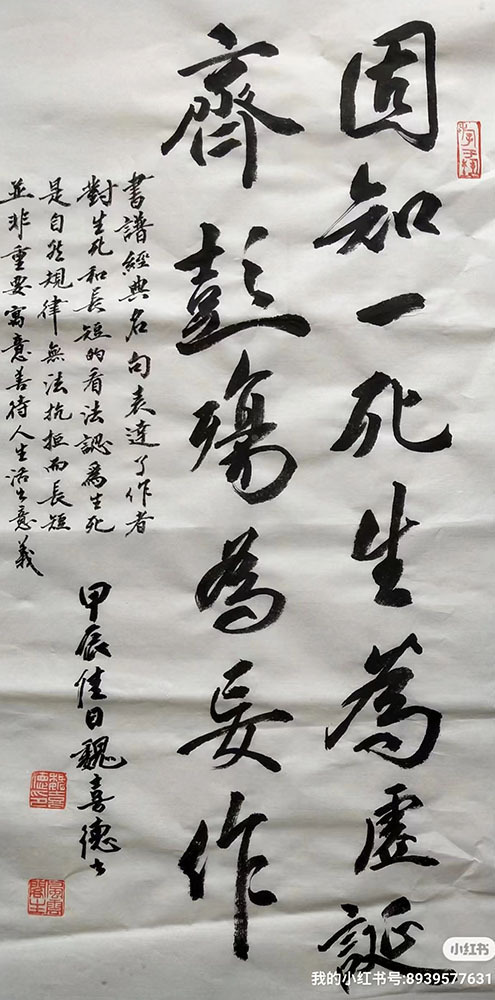 固知一死生為虛誕
齊彭殤為妄作
書譜經典名句表達了作者
對生死和長短的看法認為生死
是自然規律無法抗拒而長短
並非重要寓意善待人生活出意義
甲辰佳日魏喜德書
小红书
我的小红书号:8939577631